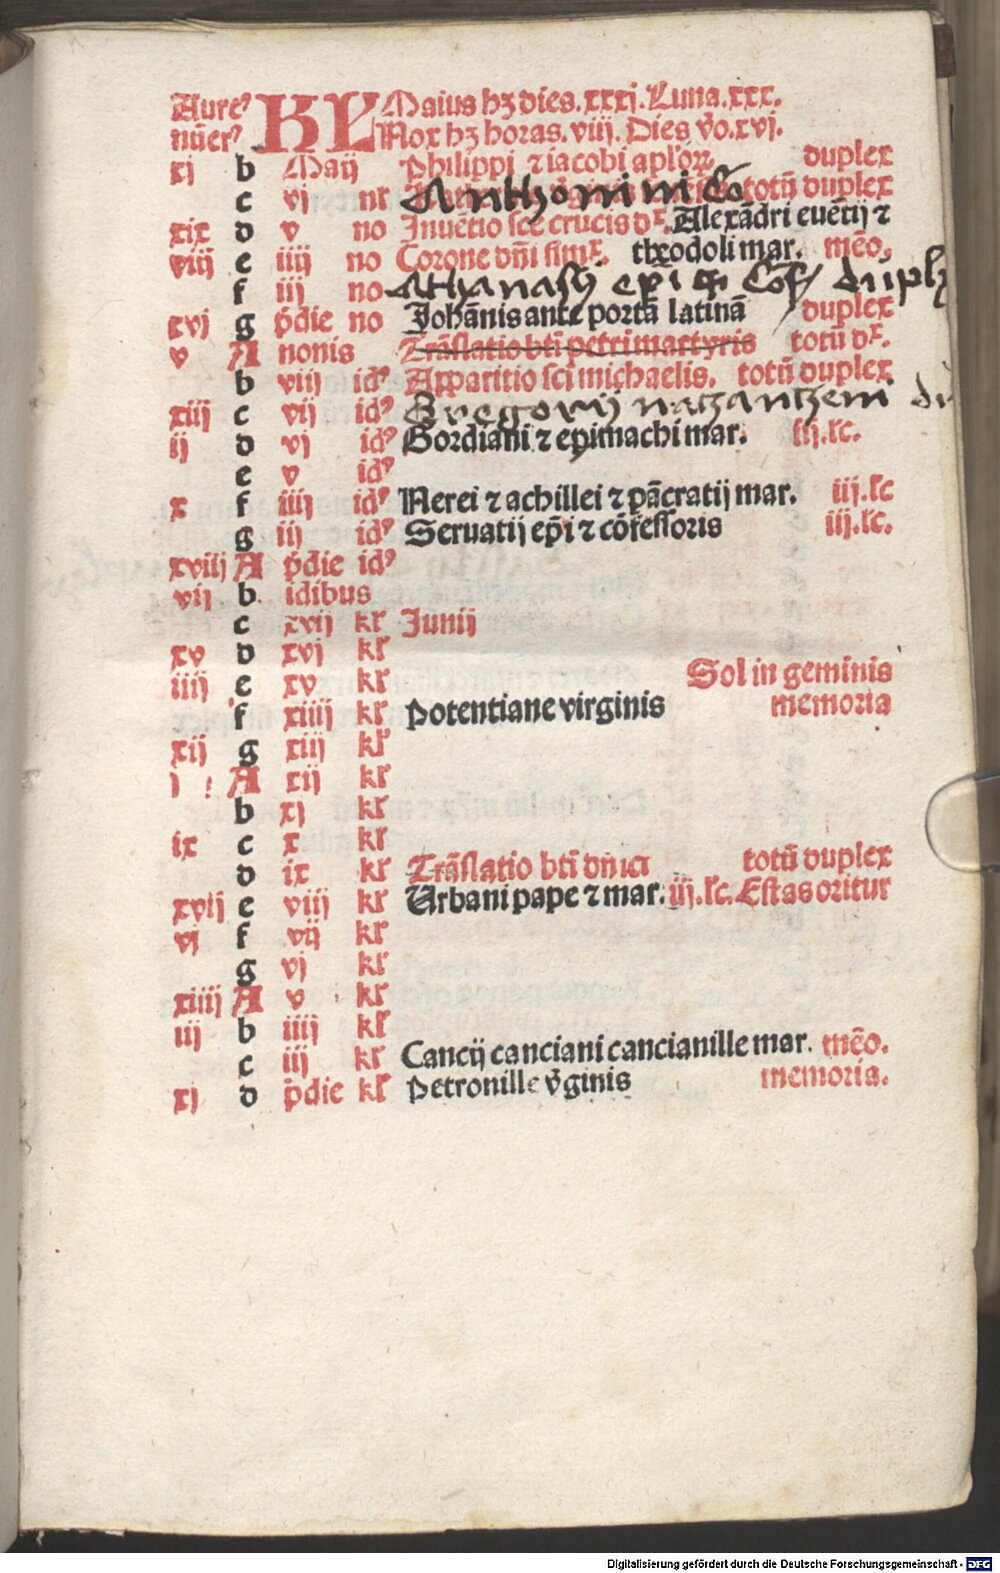 Aureꝰ KL Maius hꝫ dies. xxxj. Luna. xxx.
nu̅erꝰ Nox hꝫ horas. viij. Dies v̊o. xvj.
xj b Maij Philippi ⁊ iacobi apl'oꝝ duplex
c vj nr Anthonini Co totu̅ duplex
xix d v no Inue̅tio sce crucis dx. Alexa̅dri eue̅tij ⁊
viij e iiij no Corone dn̅i simx. theodoli mar. me̅o.
f iij no Athanasij ep̅i et Co̅f duplx
xvj g p̅die no Joha̅nis ante porta̅ latina̅ duplex
v A nonis Tra̅slatio bt̅i petri martyris totu̅ dx.
b viij idꝰ Apparitio sci michaelis. totu̅ duplex
xiij c vij idꝰ Gregorij nazanzeni du
ij d vj idꝰ Gordiani ⁊ epimachi mar. iij. lc.
e v idꝰ
x f iiij idꝰ Nerei ⁊ achillei ⁊ pa̅cratij mar. iij. lc
g iij idꝰ Seruatij ep̅i ⁊ co̅fessoris iij. lc.
xviij A p̅die idꝰ
vij b idibus
c xvij kl' Junij
xv d xvj kl'
iiij e xv kl' Sol in geminis
f xiiij kl' Potentiane virginis memoria
xij g xiij kl'
j A xij kl'
b xj kl'
ix c x kl'
d ix kl' Tra̅slatio bt̅i dn̅ici totu̅ duplex
xvij e viij kl' Urbani pape ⁊ mar. iij. lc. Estas oritur
vj f vij kl'
g vj kl'
xiiij A v kl'
iij b iiij kl'
c iij kl' Cancij canciani cancianille mar. me̅o.
xj d p̅die kl' Petronille v̊ginis memoria.
Digitalisierung gefördert durch die Deutsche Forschungsgemeinschaft - DFG